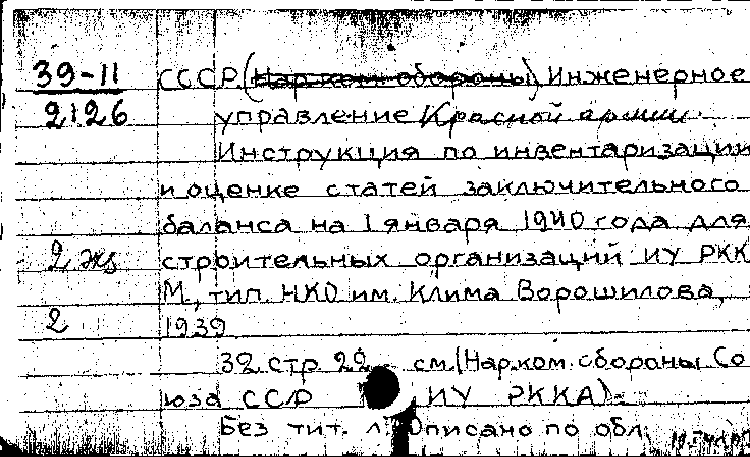 39-11 СССР. (Нар. ком. обороны). Инженерное
2126 управление Красной армии.
Инструкция по инвентаризации
и оценке статей заключительного
баланса на 1 января 1940 года для
2 экз строительных организаций ИУ РКК
М., тип. НКО им. Клима Ворошилова,
2 1939
32 стр. 22 см. (Нар. ком. обороны Со
юза ССР ИУ РККА).
Без тит. л. Описано по обл.